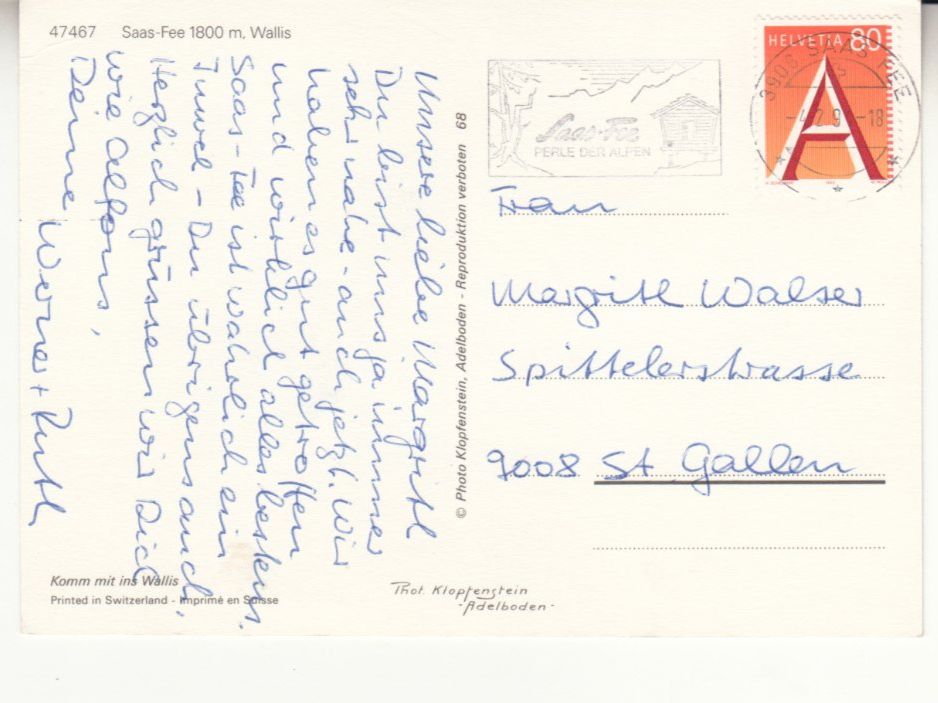 47467 Saas-Fee 1800 m, Wallis
Unsere liebe Margrith
Du bist uns ja immer
sehr nahe - auch jetzt. Wir
haben es gut getroffen
und wirklich alles bestens.
Saas-Fee ist wahrlich ein
Juwel - Du übrigens auch,
Herzlich grüssen wir Dich
wie Alfons,
Deine Werner + Ruth
Komm mit ins Wallis
Printed in Switzerland - Imprimé en Suisse
© Photo Klopfenstein, Adelboden - Reproduktion verboten 68
Phot. Klopfenstein
- Adelboden -
Saas-Fee
PERLE DER ALPEN
HELVETIA 80
A
3906 SAAS-FEE
-18
Frau
Margrith Walser
Spittelerstrasse
9008 St Gallen